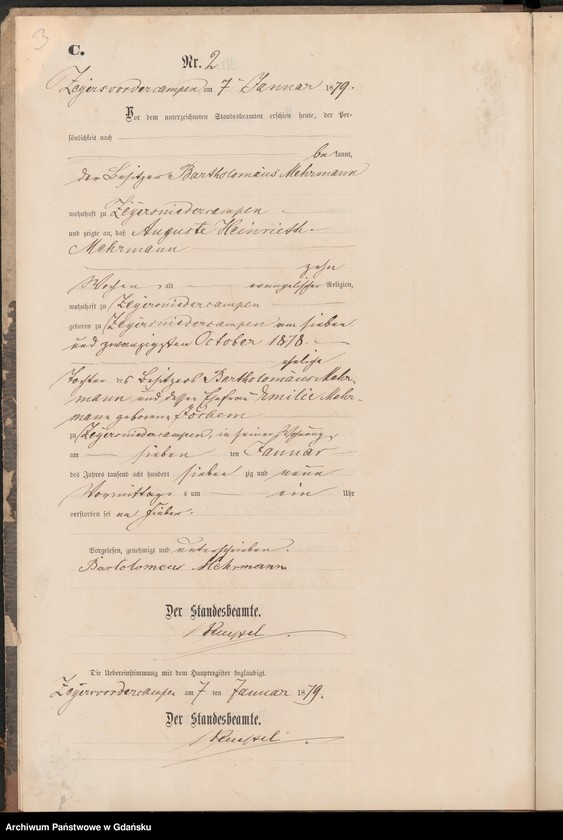 3
C.
Nr. 2
Zeyersvordercampen am 7ten Januar 1879.
Vor dem unterzeichneten Standesbeamten erschien heute, der Per-
sönlichkeit nach
be kannt,
der Besitzer Bartholomäus Mehrmann
wohnhaft zu Zeyersniedercampen
und zeigte an, daß Auguste Heinrieth
Mehrmann
zehn
Wochen alt evangelischer Religion,
wohnhaft zu Zeyersniedercampen
geboren zu Zeyersniedercampen am sieben
und zwanzigsten October 1878.
eheliche
Tochter des Besitzers Bartholomäus Mehr-
mann und dessen Ehefrau Emilie Mehr-
mann geborene Jochem
zu Zeyersniedercampen, in seiner Wohnung,
am sieben ten Januar
des Jahres tausend acht hundert sieben zig und neun
Vormittags um ein Uhr
verstorben sei an Fieber.
Vorgelesen, genehmigt und unterschrieben.
Bartolomeus Mehrmann
Der Standesbeamte.
Die Uebereinstimmung mit dem Hauptregister beglaubigt
Zeyersvordercampen am 7 ten Januar 1879.
Der Standesbeamte.
Archiwum Państwowe w Gdańsku